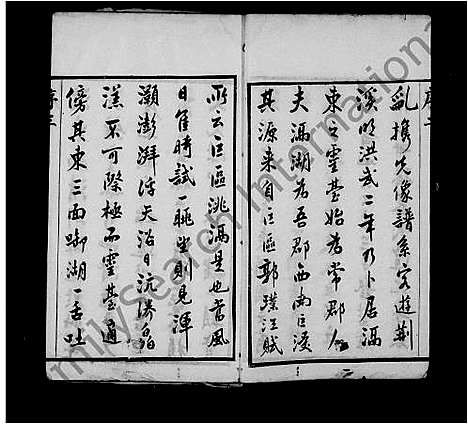 序二
亂攜先像譜系客遊荆
溪明洪武二年乃卜居滆
東之靈臺始為常郡人
夫滆湖為吾郡西南巨浸
其源來自巨區郭璞江賦
所云巨區洮滆是也當風
日佳時試一眺望則見渾
灝澎湃浮天浴日沆漭皛
溔不可際極而靈臺通
傍其東三面啣湖一舌吐
序三
milySearch Information